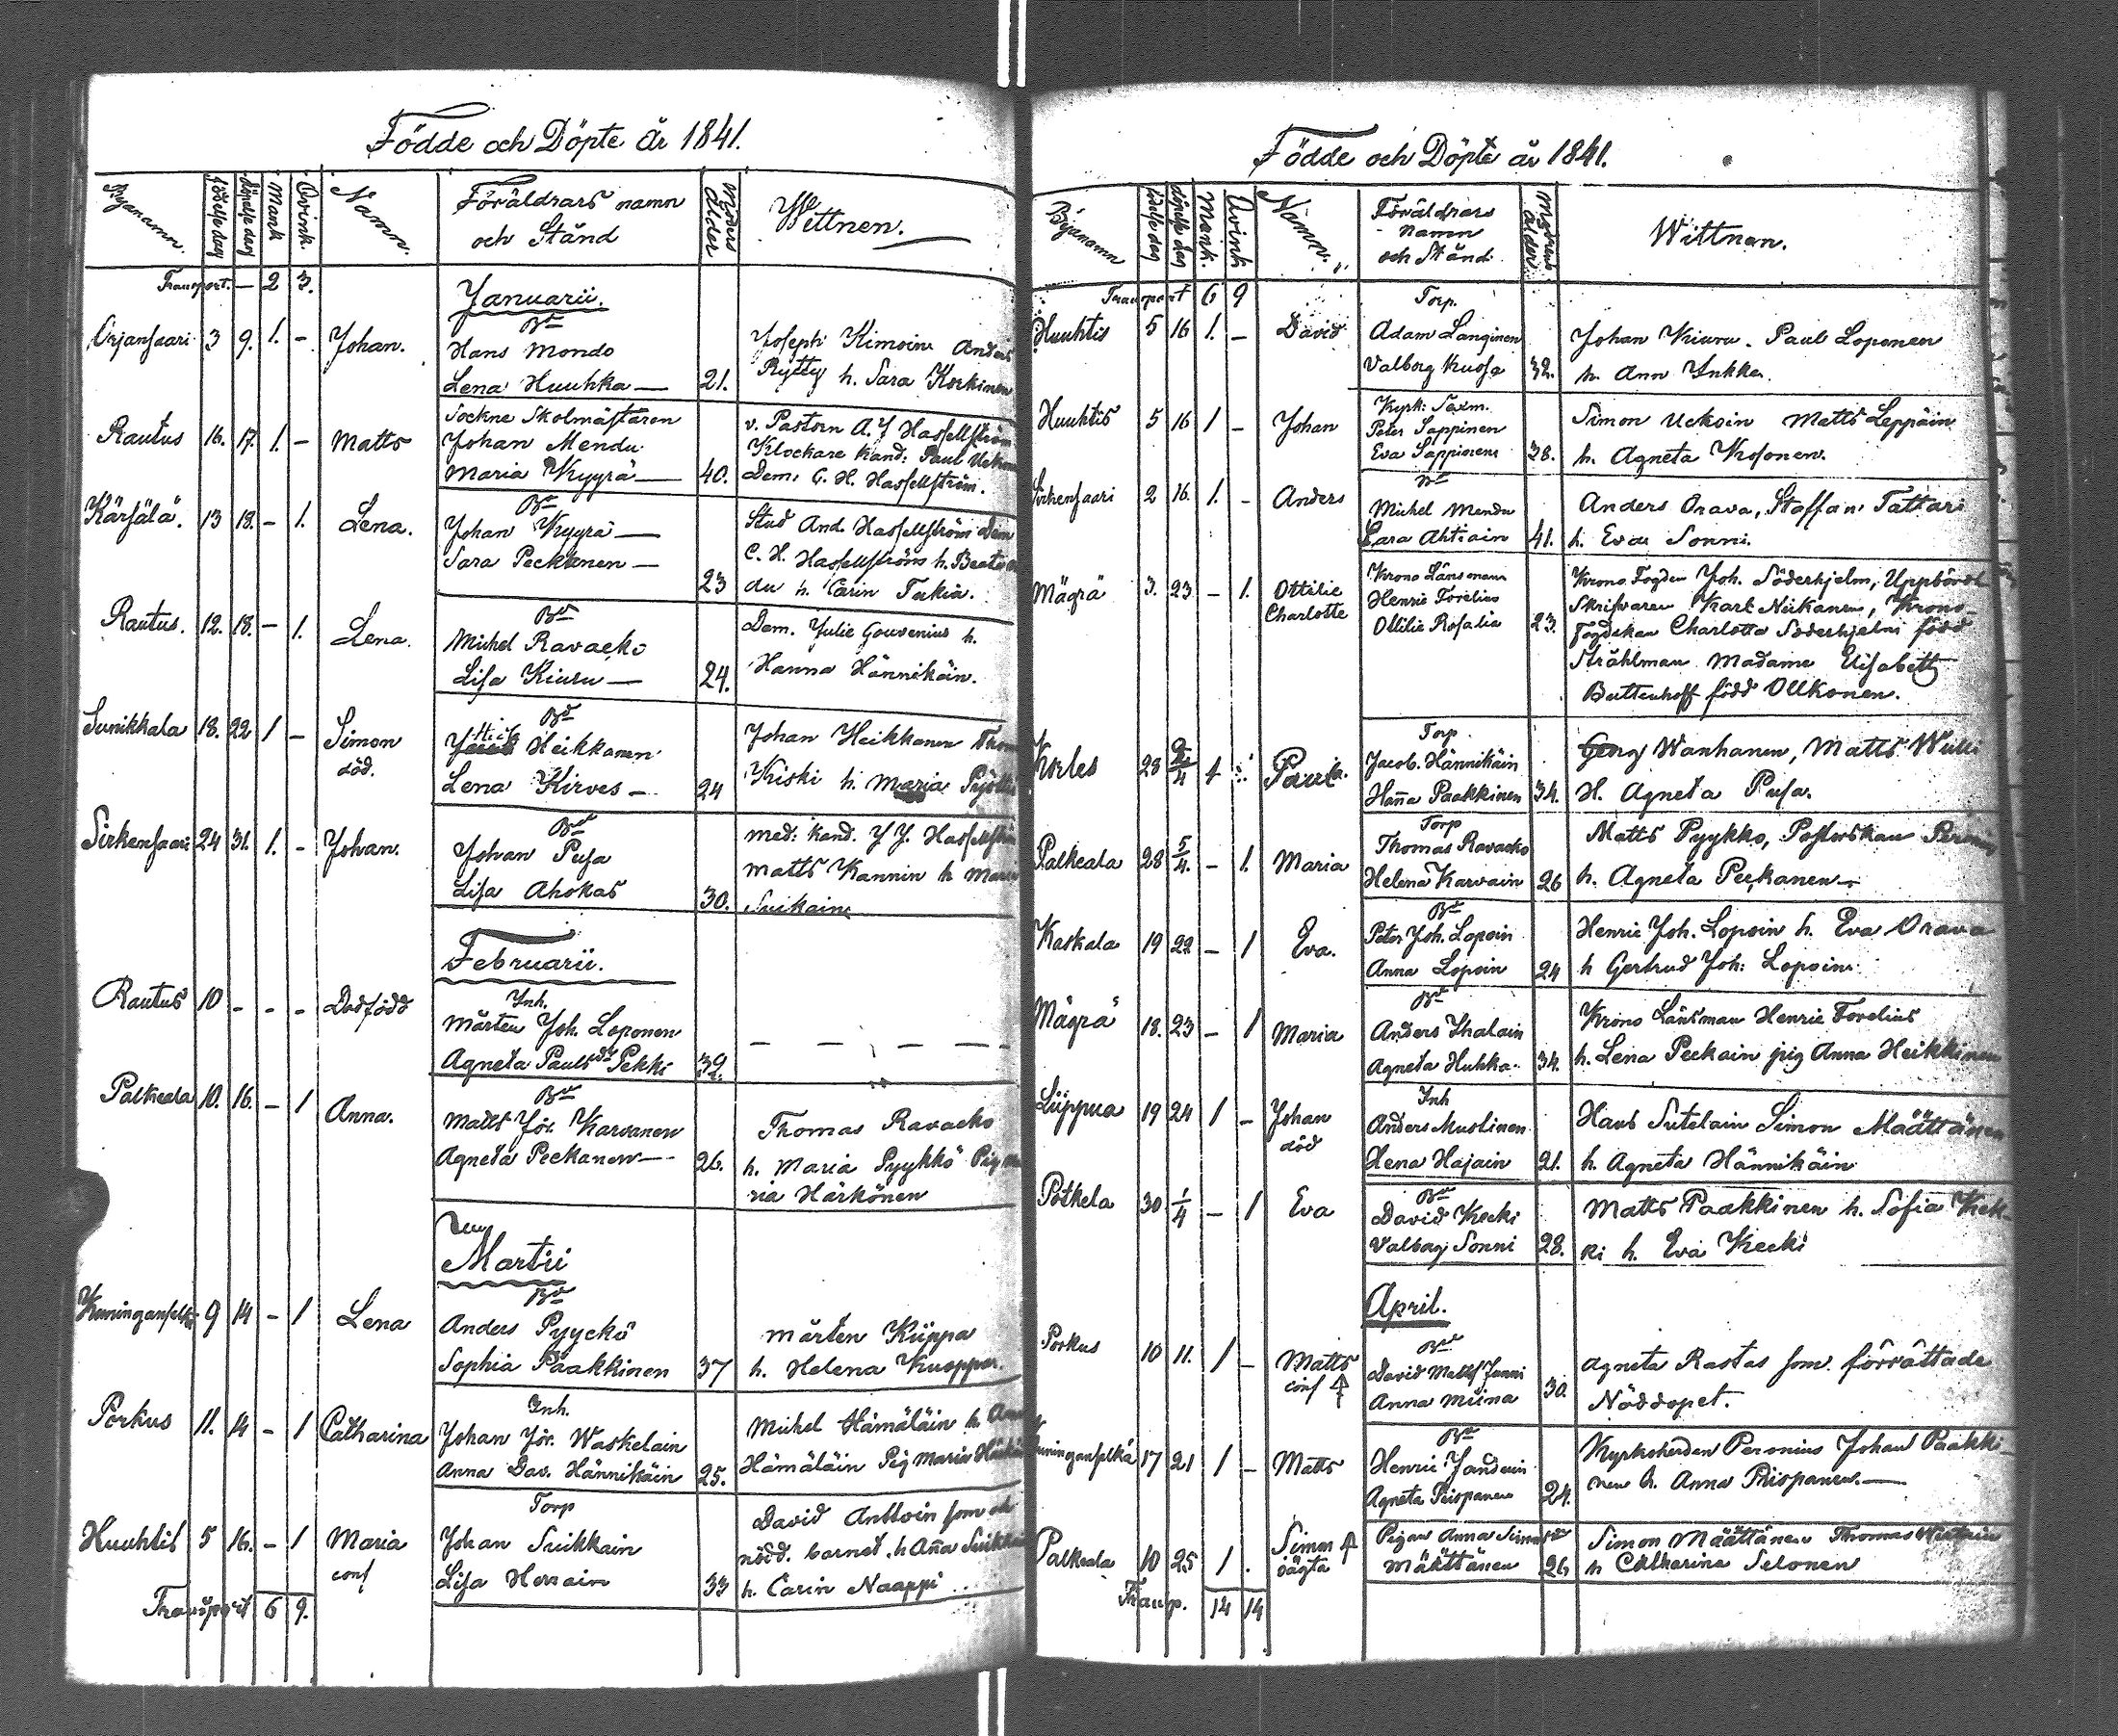 Födde och Döpte år 1841.
Byanamn. Födelse dag döpelse dag Mank Qvink. Namn. Föräldrars namn och Stånd Modrens ålder Wittnen.
Transport. — 2 3.
Januarii.
Orjansaari 3 9. 1. - Johan. Bd
Hans Mondo
Lena Huuhka — 21.
Joseph Kimoin Anders
Rytty h. Sara Korkinen
Rautus 16. 17. 1. - Matts
Sockne Skolmästaren
Johan Mendu
Maria Kyyrä — 40.
v. Pastorn A. J Hassellström
Klockare Kand: Paul
Dem: C. H. Hassellström.
Kärsälä. 13 18. - 1. Lena. Bd
Johan Kyyrä —
Sara Peckanen — 23
Stud And. Hassellström Dem
C. H. Hassellströms h. Beata
du h. Carin Terkia.
Rautus. 12. 18. - 1. Lena. Bd
Michel Ravacko
Lisa Kiuru — 24.
Dem. Julie Gouvenius h.
Hanna Hännikäin.
Sunikkala 18. 22 1 - Simon död. Bd
Heikkanen
Lena Kirves — 24
Johan Heikkanen
Kiski h. Maria
Sirkensaari 24 31. 1. - Johan. Bd
Johan Pusa
Lisa Ahokas 30.
Med: Kand. J J. Hassellström
Matts Kannin h Maria
Suikain
Februarii.
Rautus 10 - - - Dödfödd Inh.
Mårten Joh. Loponen
Agneta Pauls dr Pekki 39.
— — — —
Palkeala 10. 16. - 1 Anna. Bd
Matts Jör. Karvanen
Agneta Peckanen — 26.
Thomas Ravacko
h. Maria Pyykkö Pig Ma
ria Härkönen
Martii
Kuninganselkä 9 14 - 1 Lena Bd
Anders Pyyckö
Sophia Paakkinen 37
Mårten Kiippa
h. Helena Kuoppa
Porkus 11. 14 - 1 Catharina Inh.
Johan Jör. Waskelain
Anna Dav. Hännikäin 25.
Michel Hämäläin h.
Hämäläin Pig Maria
Huuhtis 5 16. - 1 Maria conf Torp
Johan Suikkain
Lisa Herrain 33
David Anttoin som
nödd. barnet. h Anna
h. Carin Naappi
Transport 6 9.
Födde och Döpte år 1841.
Byanamn födelse dag döpelse dag Mank. Qvink Namn. Föräldrars namn och Stånd Modrens ålder Wittnen.
Transport 6 9
Huuhtis 5 16 1. - David Torp.
Adam Langinen
Valborg Kuosa 32.
Johan Kiuru. Paul Loponen
h. Ann Inkka.
Huuhtis 5 16 1 - Johan Kyrk: Sexm.
Peter Sappinen
Eva Sappinen 38.
Simon Uckoin Matts Leppäin
h. Agneta Kosonen.
Sirkensaari 2 16. 1. - Anders Bd
Michel Mendu
Sara Ahtiain 41.
Anders Orava, Staffan Tattari
h. Eva Sonni.
Mägrä 3. 23 - 1. Ottilie Charlotte
Krono Länsman
Henric Forelius
Ottilie Rosalia 23.
Krono Fogden Joh. Söderhjelm, Uppbörds
Skrifvaren Karl Niikanen, Krono-
Fogdskan Charlotta Söderhjelm född
Stråhlman Madame Elisabeth
Buttenhoff född Ollkonen.
Korles 28 2/4 1 Paul Torp.
Jacob. Hännikäin
Hanna Paakkinen 34.
Georg Wanhanen, Matts
H. Agneta Pusa.
Palkeala 28 5/4. - 1. Maria Torp
Thomas Ravacko
Helena Karvain 26
Matts Pyykko, Pastorskan Peronius
h. Agneta Peckanen
Kaskala 19 22 - 1 Eva. Bd
Peter Joh. Lopoin
Anna Lopoin 24
Henric Joh. Lopoin h. Eva Orava
h Gertrud Joh: Lopoin
Mägrä 18. 23 - 1 Maria Bd
Anders Ihalain
Agneta Huhka 34.
Krono Länsman Henric Forelius
h. Lena Peckain pig Anna Heikkinen
Liippua 19 24 1 - Johan död Inh
Anders Mustinen
Hena Hajain 21.
Hans Sutelain Simon Määttänen
h. Agneta Hännikäin
Potkela 30 1/4 - 1 Eva Bd
David Kecki
Valborg Sonni 28.
Matts Paakkinen h. Sofia Kek-
ki h. Eva Kecki
April.
Porkus 10 11. 1 - Matts conf Bd
David Matts Janni
Anna Miina 30.
Agneta Rastas som förrättade
Nöddopet.
Kuninganselkä 17 21 1 - Matts Bd
Henric
Agneta Piispanen 24.
Kyrkoherden Peronius Johan Paakki-
nen h. Anna Piispanen. —
Palkeala 10 25 1 . Simon oägta
Pigan Anna
Määttänen 26
Simon Määttänen Thomas
h Catharina Ilonen
Transp. 14 14